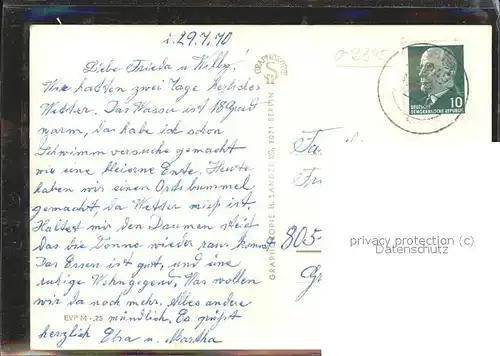 i. 29.7.70
Liebe Frieda u. Willy!
Wir hatten zwei Tage herrliches
Wetter. Das Wasser ist 18 Grad
warm, da habe ich schon
Schwimmversuche gemacht
wie eine bleierne Ente. Heute
haben wir einen Ortsbummel
gemacht, da Wetter mies ist.
Haltet mir den Daumen
Das die Sonne wieder raus kommt
Das Essen ist gut, und eine
ruhige Wohngegend. Was wollen
wir da noch mehr. Alles andere
EVP M -,25 mündlich. Es grüßt
herzlich Elsa u. Martha
GRAPHOKOPIE
GRAPHOKOPIE H. SANDER KG, 1071 BERLIN
02845
10
DEUTSCHE
DEMOKRATISCHE REPUBLIK
Fa
805-
privacy protection (c)
Datenschutz